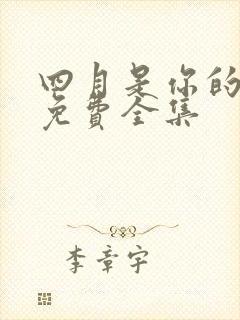 四月是你的
免費全集
李章宇